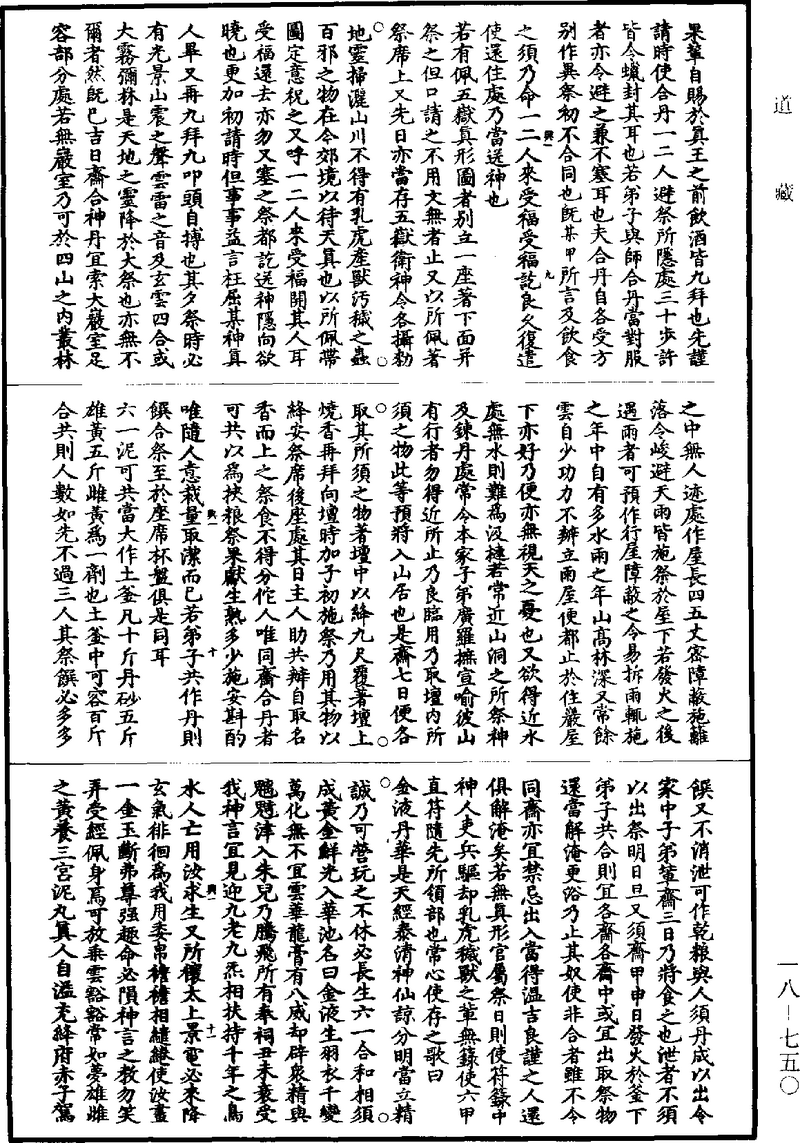 道藏
果輩自賜於真王之前飲酒皆九拜也先謹
請時使合丹一二人避祭所隱處三十步許
皆令蠟封其耳也若弟子與師合丹當對服
者亦令避之兼不塞耳也夫合丹自各受方
別作異祭初不合同也既某甲所言及飲食
之須乃命一二人來受福受福訖良久復遣
使還住處乃當送神也
若有佩五嶽真形圖者別立一座著下面并
祭之但口請之不用文無者止又以所佩著
祭席上又先日亦當存五嶽衛神令各攝勑
地靈掃灑山川不得有乳虎產獸污穢之蟲
百邪之物在令郊境以待天真也以所佩帶
圖定意祝之又呼一二人來受福開其人耳
受福還去亦勿又塞之祭都訖送神隱向欲
曉也更加初請時但事事益言枉屈某神真
人畢又再九拜九叩頭自搏也其夕祭時必
有光景山震之聲雲雷之音及玄雲四合或
大霧彌林是天地之靈降於大祭也亦無不
爾者然既已吉日齋合神丹宜索大巖室足
容部分處若無巖室乃可於四山之內叢林
之中無人迹處作屋長四五丈密障蔽施籬
落令峻避天雨皆施祭於屋下若發火之後
遇雨者可預作行屋障蔽之令易拆雨輒施
之年中自有多水雨之年山高林深又常餘
雲自少功力不辦立雨屋便都止於住巖屋
下亦好乃便亦無視天之憂也又欲得近水
處無水則難為汲揵若常近山洞之所祭神
及鍊丹處常令本家子弟廣羅撫宣喻彼山
有行者勿得近所止乃良臨用乃取壇內所
須之物此等預將入山居也是齋七日便各
取其所須之物著壇中以絳九尺覆著壇上
燒香再拜向壇時加子初施祭乃用其物以
絳安祭席後座處其日主人助共辦自取名
香而上之祭食不得分佗人唯同齋合丹者
可共以為挾粮祭果獻生熟多少施安斟酌
唯隨人意裁量取潔而已若弟子共作丹則
饌合祭至於座席杯盤俱是同耳
六一泥可共當大作土釜凡十斤丹砂五斤
雄黃五斤雌黃為一劑也土釜中可容百斤
合共則人數如先不過三人其祭饌必多多
饌又不消泄可作乾粮與人須丹成以出令
家中子弟輩齋三日乃將食之也泄者不須
以出祭明日旦又須齋甲申日發火於釜下
弟子共合則宜各齋各齋中或宜出取祭物
還當解淹更浴乃止其奴使非合者雖不令
同齋亦宜禁忌出入當得溫吉良謹之人還
俱解淹矣若無真形官屬祭日則使符籙中
神人吏兵驅却乳虎穢獸之輩無籙使六甲
直符隨先所領部也常心使存之歌曰
金液丹華是天經泰清神仙諒分明當立精
誠乃可營玩之不休必長生六一合和相須
成黃金鮮光入華池名曰金液生羽衣千變
萬化無不宜雲華龍膏有八威却辟衆精與
魑魅津入朱兒乃騰飛所有奉祠丑未衰受
我神言宜見迎九老九炁相扶持千年之鳥
水人亡用汝求生又所禳太上景電必來降
玄氣徘徊為我用委帛襜襜相繾綣使汝畫
一金玉斷弗尊强趣命必隕神言之教勿笑
弄受經佩身焉可放乘雲豁豁常如夢雄雌
之黃養三宮泥丸真人自溢充絳府赤子駕
一八—七五〇